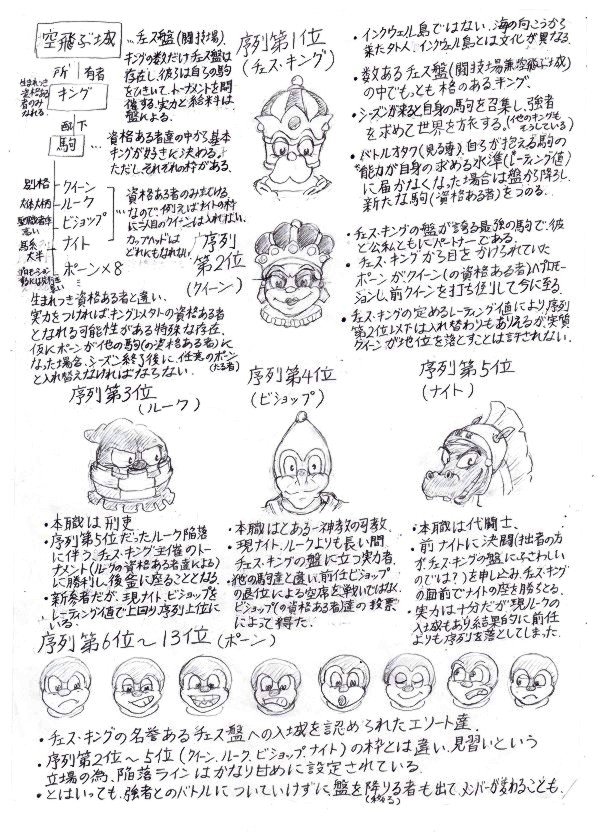 空飛ぶ城
所有者
キング
配下
駒
生まれつき
資格ある者のみ
なれる
…チェス盤(闘技場)。
キングの数だけチェス盤は
存在し、彼らは自らの駒
をひきいて、トーナメントを開
催する。実力と給料は
盤による。
資格ある者達の中から基本
キングが好きに決める。
ただしそれぞれの枠がある。
別格
クイーン
大体大柄
ルーク
聖職者率
高い
ビショップ
馬系
大半
ナイト
ポーン×8
資格ある者のみなれる
なので、例えばナイトの枠
に二人目のクイーンは入れない。
カップヘッドは
どれにもなれない
生まれつき資格ある者と違い、
実力をつければキング以外の資格ある者
となれる可能性がある特殊な存在。
仮にポーンが他の駒(の資格ある者)に
なった場合、シーズン終了後に、任意のポーン
(たる者)
と入れ替えなければならない。
序列第1位
(チェス・キング)
・インクウェル島ではない、海の向こうから
来た外人。インクウェル島とは文化が異なる。
・数あるチェス盤(闘技場兼空飛ぶ城)
の中でもっとも格のあるキング。
・シーズンが来ると自身の駒を召集し、強者
を求めて世界を旅する。(他のキングも
そうしている)
・バトルオタク(見る専)。自らが抱える駒の
能力が自身の求める水準(レーティング値)
に届かなくなった場合は盤から降ろし、
新たな駒(資格ある者)をつのる。
序列
第2位
(クイーン)
・チェス・キングの盤が誇る最強の駒で、彼
と公私ともにパートナーである。
・チェス・キングから目をかけられていた
ポーンがクイーン(の資格ある者)へプロモー
ションし、前クイーンを打ち倒して今に至る。
・チェス・キングの定めるレーティング値により、序列
第2位以下は入れ替わりもありえるが、実質
クイーンが地位を落とすことは許されない。
序列第3位
(ルーク)
・本職は刑吏
・序列第5位だったルーク陥落
に伴う、チェス・キング主催のトー
ナメント(ルークの資格ある者達による)
に勝利し、後釜に座ることとなる。
・新参者だが、現ナイト、ビショップを
レーティング値で上回り序列上位に
いる。
序列第4位
(ビショップ)
・本職はとある一神教の司教。
・現ナイト、ルークよりも長い間
チェス・キングの盤に立つ実力者。
・他の駒達と違い、前任ビショップ
の退位による空席を戦いではなく、
ビショップの資格ある者達の投票
によって得た。
序列第5位
(ナイト)
・本職は代闘士。
・前ナイトに決闘(拙者の方
がチェス・キングの盤にふさわしい
のでは?)を申し込み、チェス・キング
の面前でナイトの座を勝ちとる。
・実力は十分だが現ルークの
入城もあり、結果的に前任
よりも序列を落としてしまった。
序列第6位〜13位(ポーン)
・チェス・キングの名誉あるチェス盤への入城を認められたエリート達。
・序列第2位〜5位(クイーン、ルーク、ビショップ、ナイト)の枠とは違い、見習いという
立場の為、陥落ラインはかなり甘めに設定されている。
・とはいっても、強者とのバトルについていけずに盤を降りる者も出て、メンバーが変わることも。